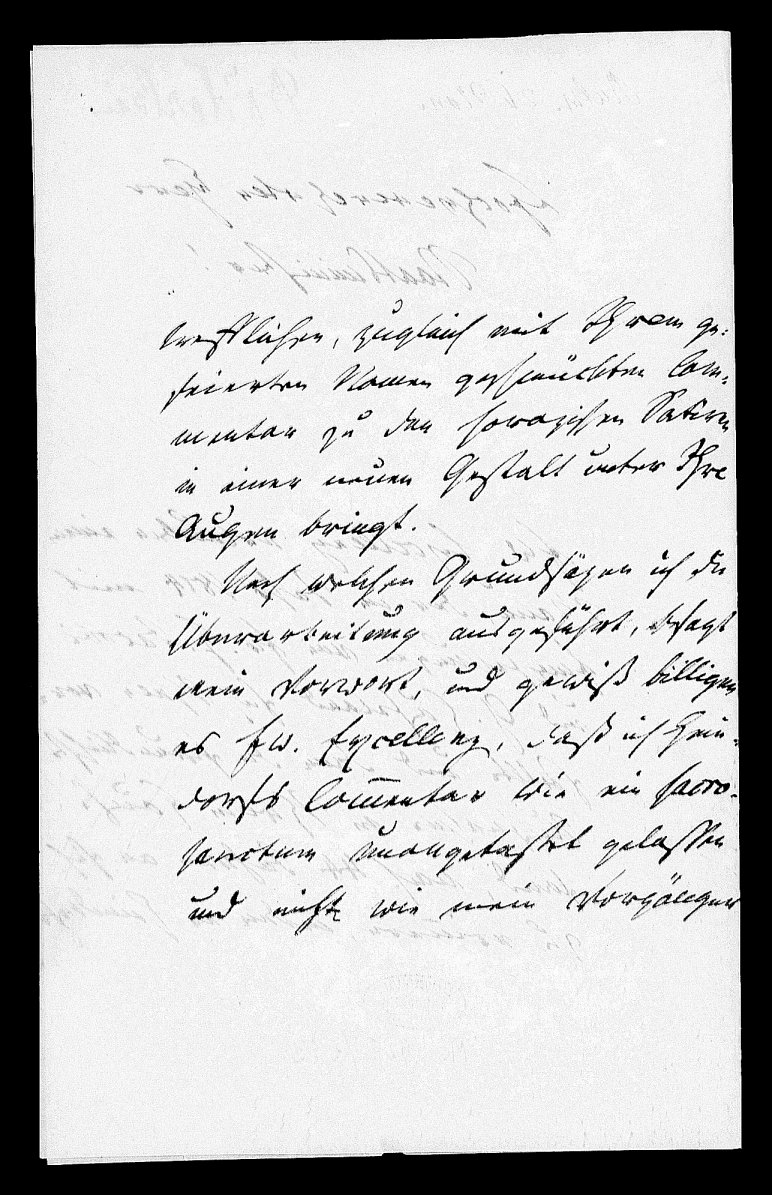 trefflichen, zugleich mit Ihrem ge-
feierten Namen geschmückten Com-
mentar zu den horazischen Satiren
in einer neuen Gestalt unter Ihre
Augen bringt.
Nach welchen Grundsätzen ich die
Überarbeitung ausgeführt, besagt
mein Vorwort, und gewiß billigen
es Ew. Excellenz, daß ich Hein-
dorfs Commentar wie ein sacro-
sanctum unangetastet gelassen
und nicht wie mein Vorgänger